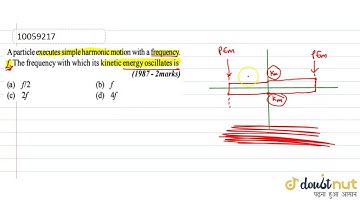 10059217
A particle executes simple harmonic motion with a frequency.
f. The frequency with which its kinetic energy oscillates is
(1987 - 2marks)
(a) f/2 (b) f
(c) 2f (d) 4f
PEm
PEm
Km
Km
doubtnut
पढ़ना हुआ आसान